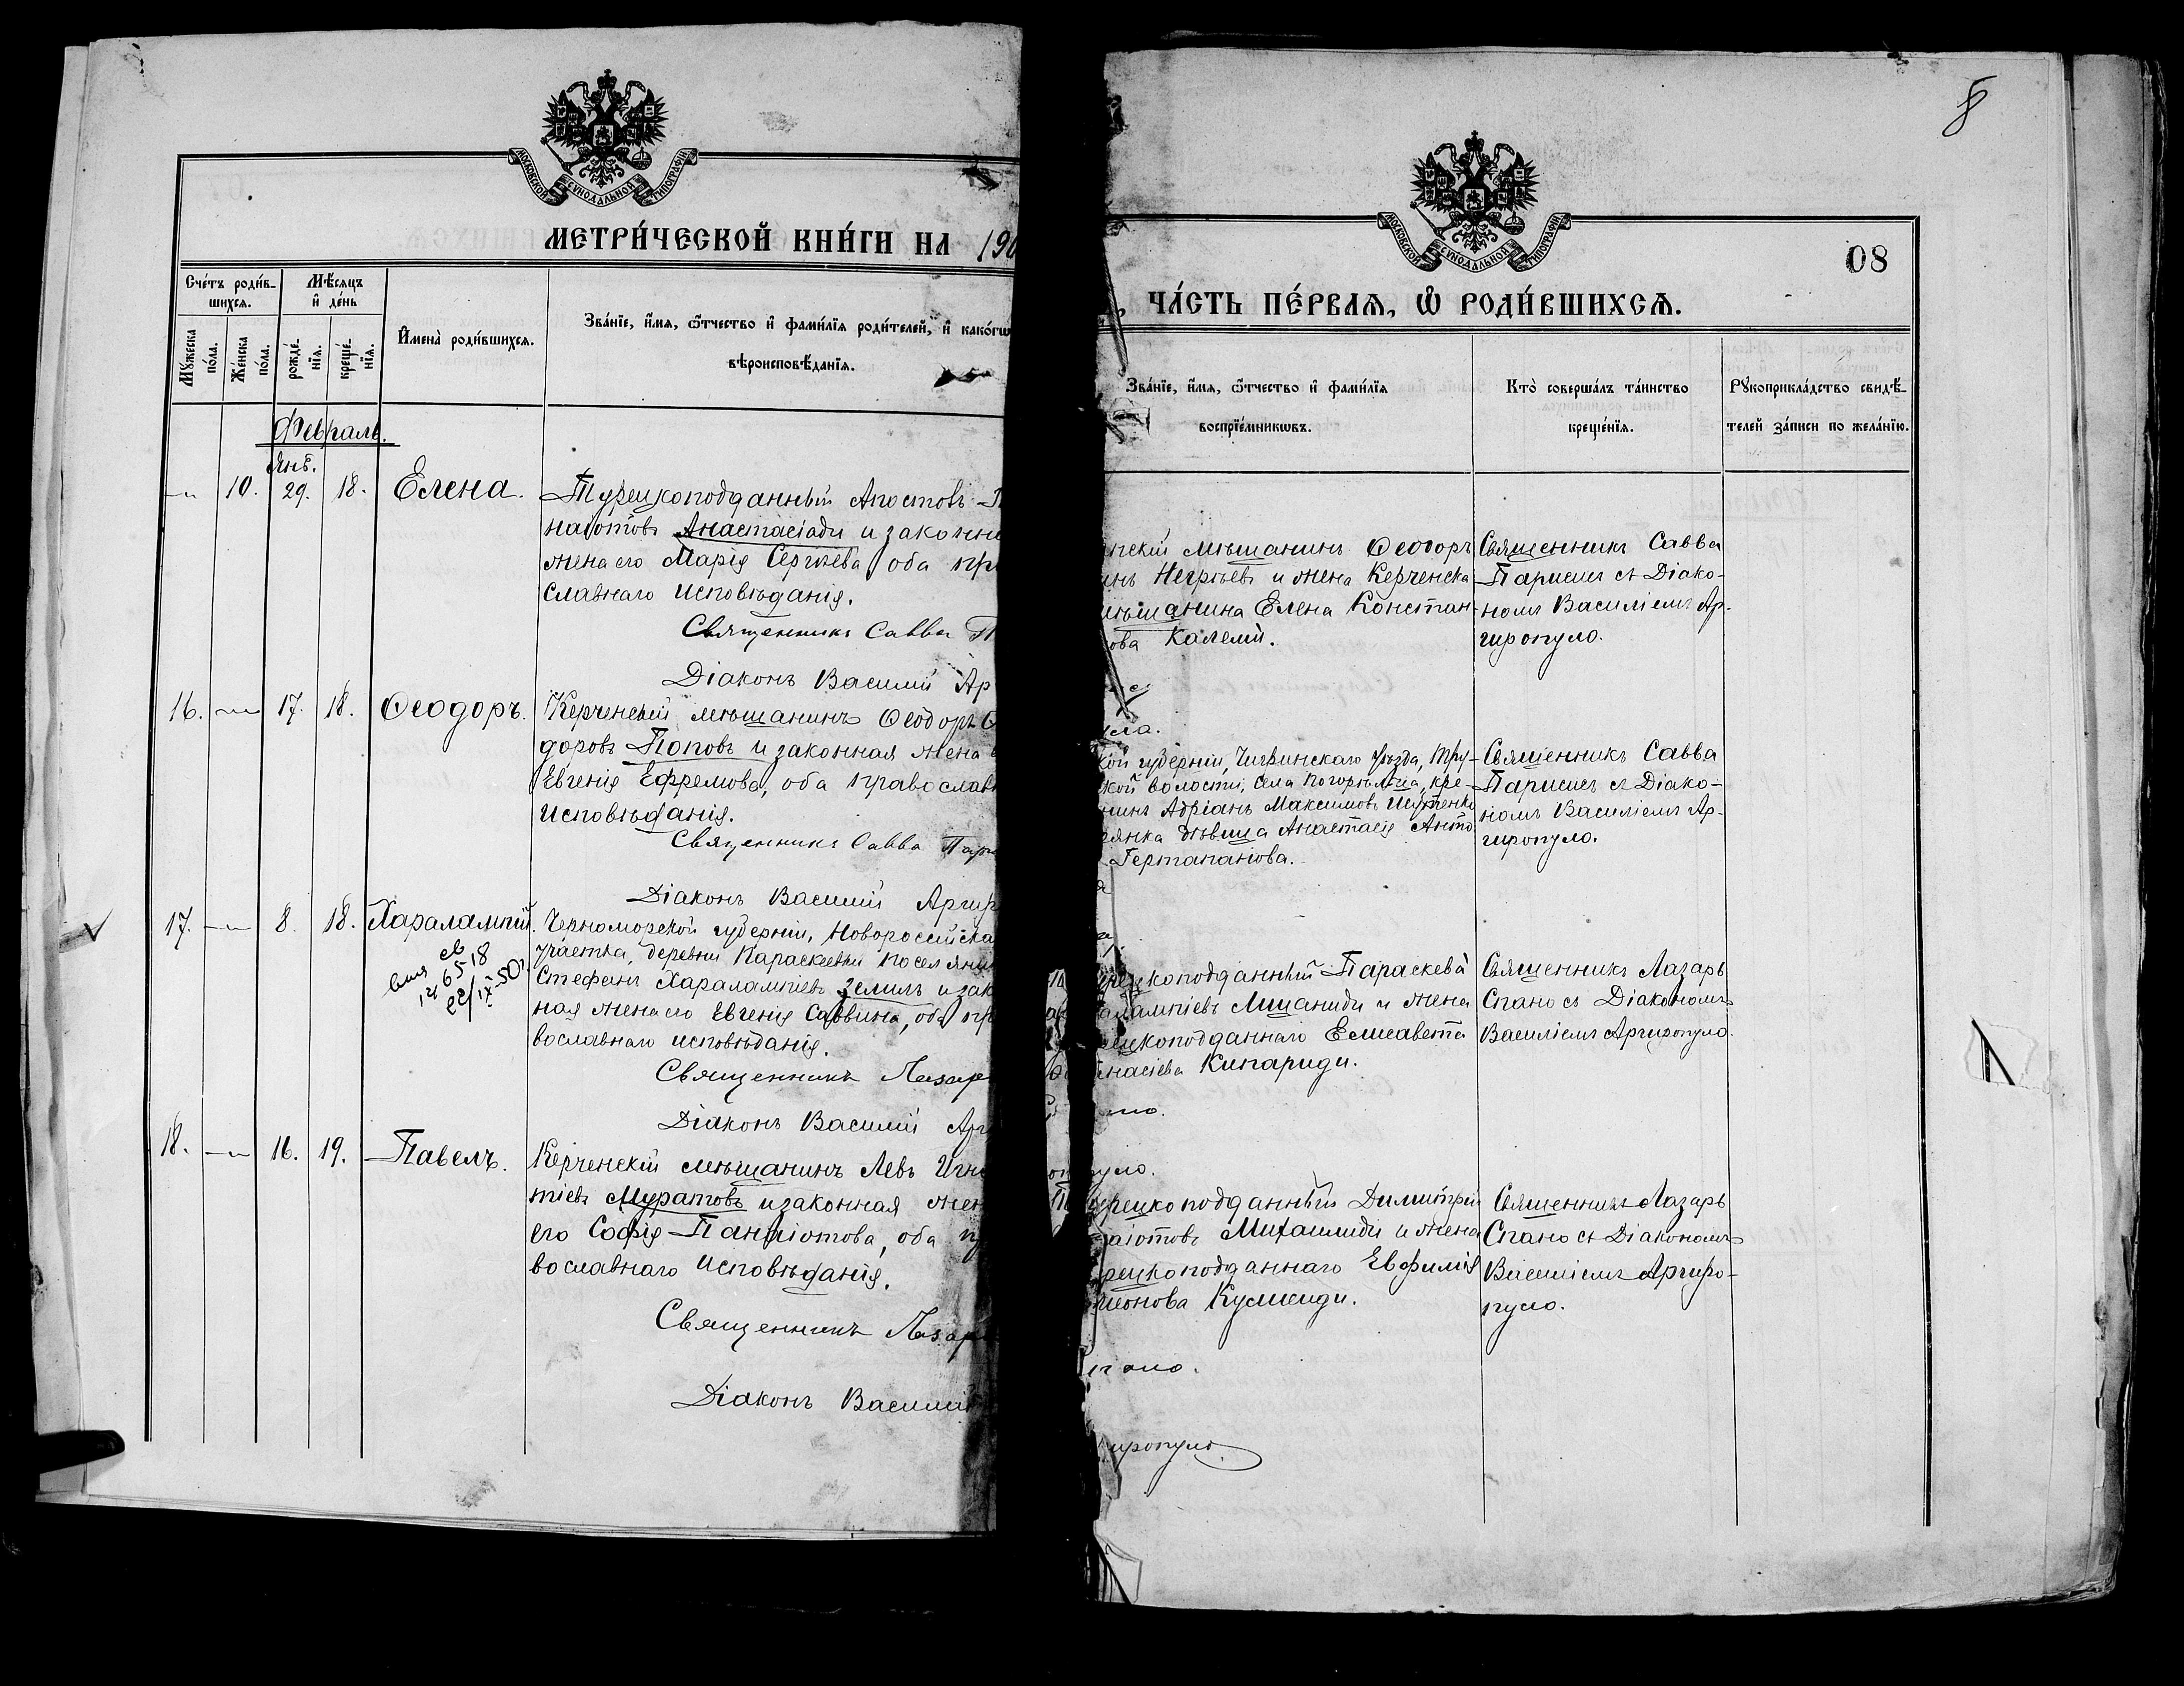 МОСКОВСКОЙ СѴНОДАЛЬНОЙ ТИПОГРАФІИ.
МЕТРИ́ЧЕСКОЙ КНИ́ГИ НА 190
Сче́тъ роди́в-
шихсѧ.
Мѣ́сяцъ
и҆ де́нь
Мꙋ́жеска
по́ла.
Же́нска
по́ла.
рожде́-
нїѧ.
креще́-
нїѧ.
И҆мена̀ роди́вшихсѧ.
Зва́нїе, и҆́мѧ, ѻ҆́тчество и҆ фами́лїѧ роди́телей, и҆ како́гѡ
вѣроисповѣ́данїѧ.
Февраль.
Янв.
10. 29. 18. Елена.
Турецкоподданный Апостовъ
наіотовъ Анастасіади и законн
жена его Марія Сергѣева оба пр
славнаго исповѣданія.
Священникъ Савва П
Діаконъ Василій Ар
16. 17. 18. Ѳеодоръ.
Керченскій мѣщанинъ Ѳеодоръ Ѳ
доровъ Поповъ и законная жена
Евгенія Ефремова, оба православ
исповѣданія.
Священникъ Савва Пари
Діаконъ Василій Аргир
17. 8. 18. Харалампій.
св
6518
22/IX-50г.
Черноморской губерніи, Новороссійска
участка, деревни Караскевки поселянин
Стефанъ Харалампіевъ Зелилъ и зак
ная жена его Евгенія Саввина, оба пр
вославнаго исповѣданія.
Священникъ Лазарь
Діаконъ Василій Арг
18. 16. 19. Павелъ.
Керченскій мѣщанинъ Левъ Игна
тіевъ Муратовъ и законная жен
его Софія Панаіотова, оба пр
вославнаго исповѣданія.
Священникъ Лазарь
Діаконъ Василій
8
МОСКОВСКОЙ СѴНОДАЛЬНОЙ ТИПОГРАФІИ.
08
ЧА́СТЬ ПЕ́РВАЯ, Ѡ҆ РОДИ́ВШИХСѦ.
Зва́нїе, и҆́мѧ, ѻ҆́тчество и҆ фами́лїѧ
воспрїе́мникѡвъ.
Кто̀ соверша́лъ та́инство
креще́нїѧ.
Рꙋкоприкла́дство свидѣ́-
телей за́писи по жела́нїю.
нскій мѣщанинъ Ѳеодоръ
инъ Негрѣевъ и жена Керченска
мѣщанина Елена Констан-
ова Калеми.
Священникъ Савва
Парисисъ съ Діако-
номъ Василіемъ Ар-
гиропуло.
кой губерніи, Чигиринскаго уѣзда, Тру-
кой волости, села Погорѣльца, кре-
нинъ Адріанъ Максимовъ Шутенко
рянка дѣвица Анастасія Анто
Гертапанова.
Священникъ Савва
Парисисъ съ Діако-
номъ Василіемъ Ар-
гиропуло.
урецкоподданный Параскева
алампіевъ Лишаниди и жена
ецкоподданнаго Елисавета
анасіева Кипариди.
Священникъ Лазарь
Спано съ Діакономъ
Василіемъ Аргиропуло.
но.
пуло.
урецкоподданный Димитрій
аіотовъ Михаилиди и жена
рецкоподданнаго Евфимія
меонова Кусиниди.
Священникъ Лазарь
Спано съ Діакономъ
Василіемъ Аргиро-
пуло.
пано.
иропуло